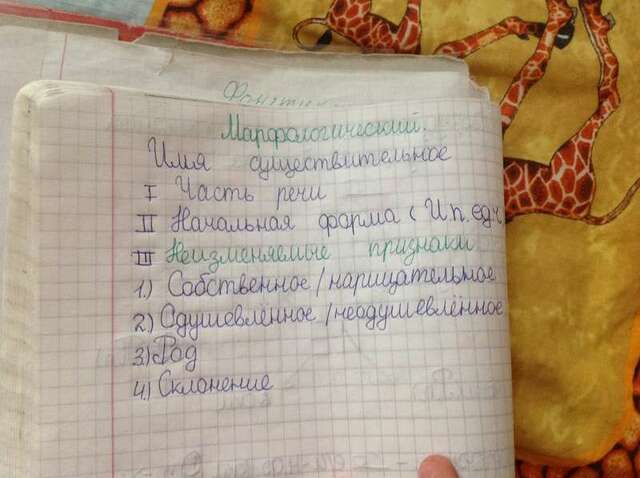 Марфологический.
Имя существительное
I Часть речи
II Начальная форма (И п, ед ч
III Неизменяемые признаки
1.) Собственное/нарицательное
2.) Одушевлённое/неодушевлённое
3.) Род
4.) Склонение